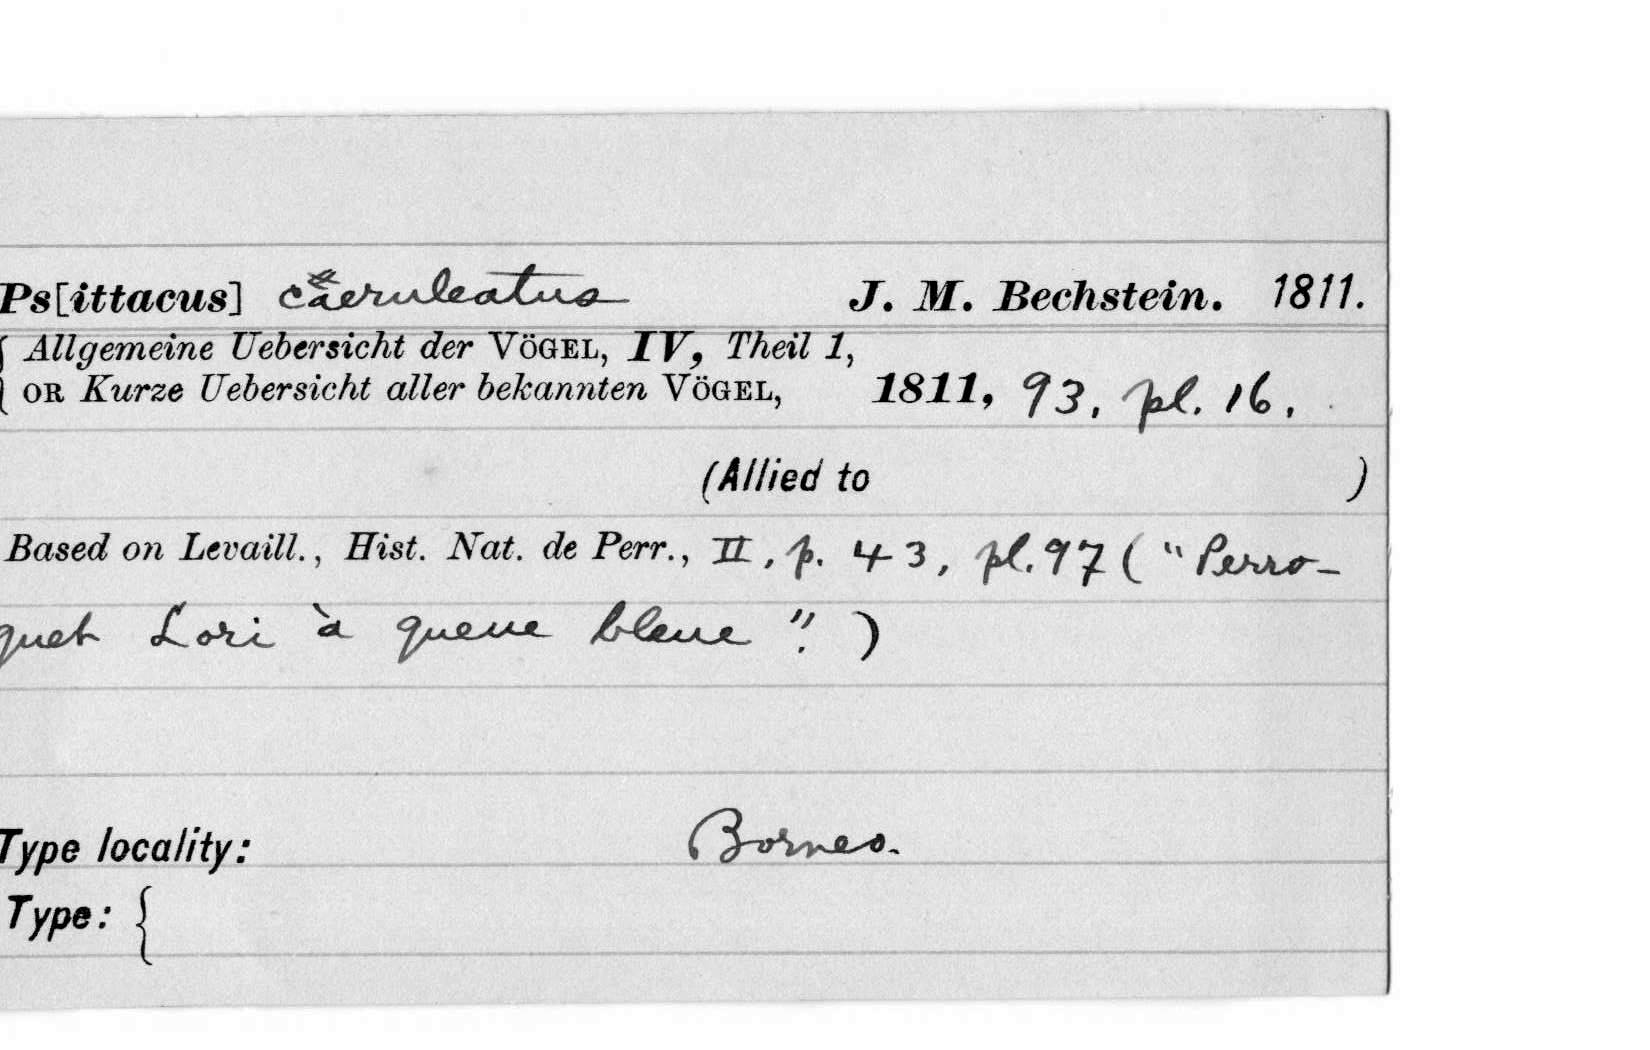 Ps[ittacus] caeruleatus J. M. Bechstein. 1811.
{ Allgemeine Uebersicht der VÖGEL, IV, Theil 1,
OR Kurze Uebersicht aller bekannten VÖGEL, 1811, 93, pl. 16.
(Allied to )
Based on Levaill., Hist. Nat. de Perr., II, p. 43, pl. 97 ("Perro-
quet Lori à queue bleue".)
Type locality: Borneo.
Type: {